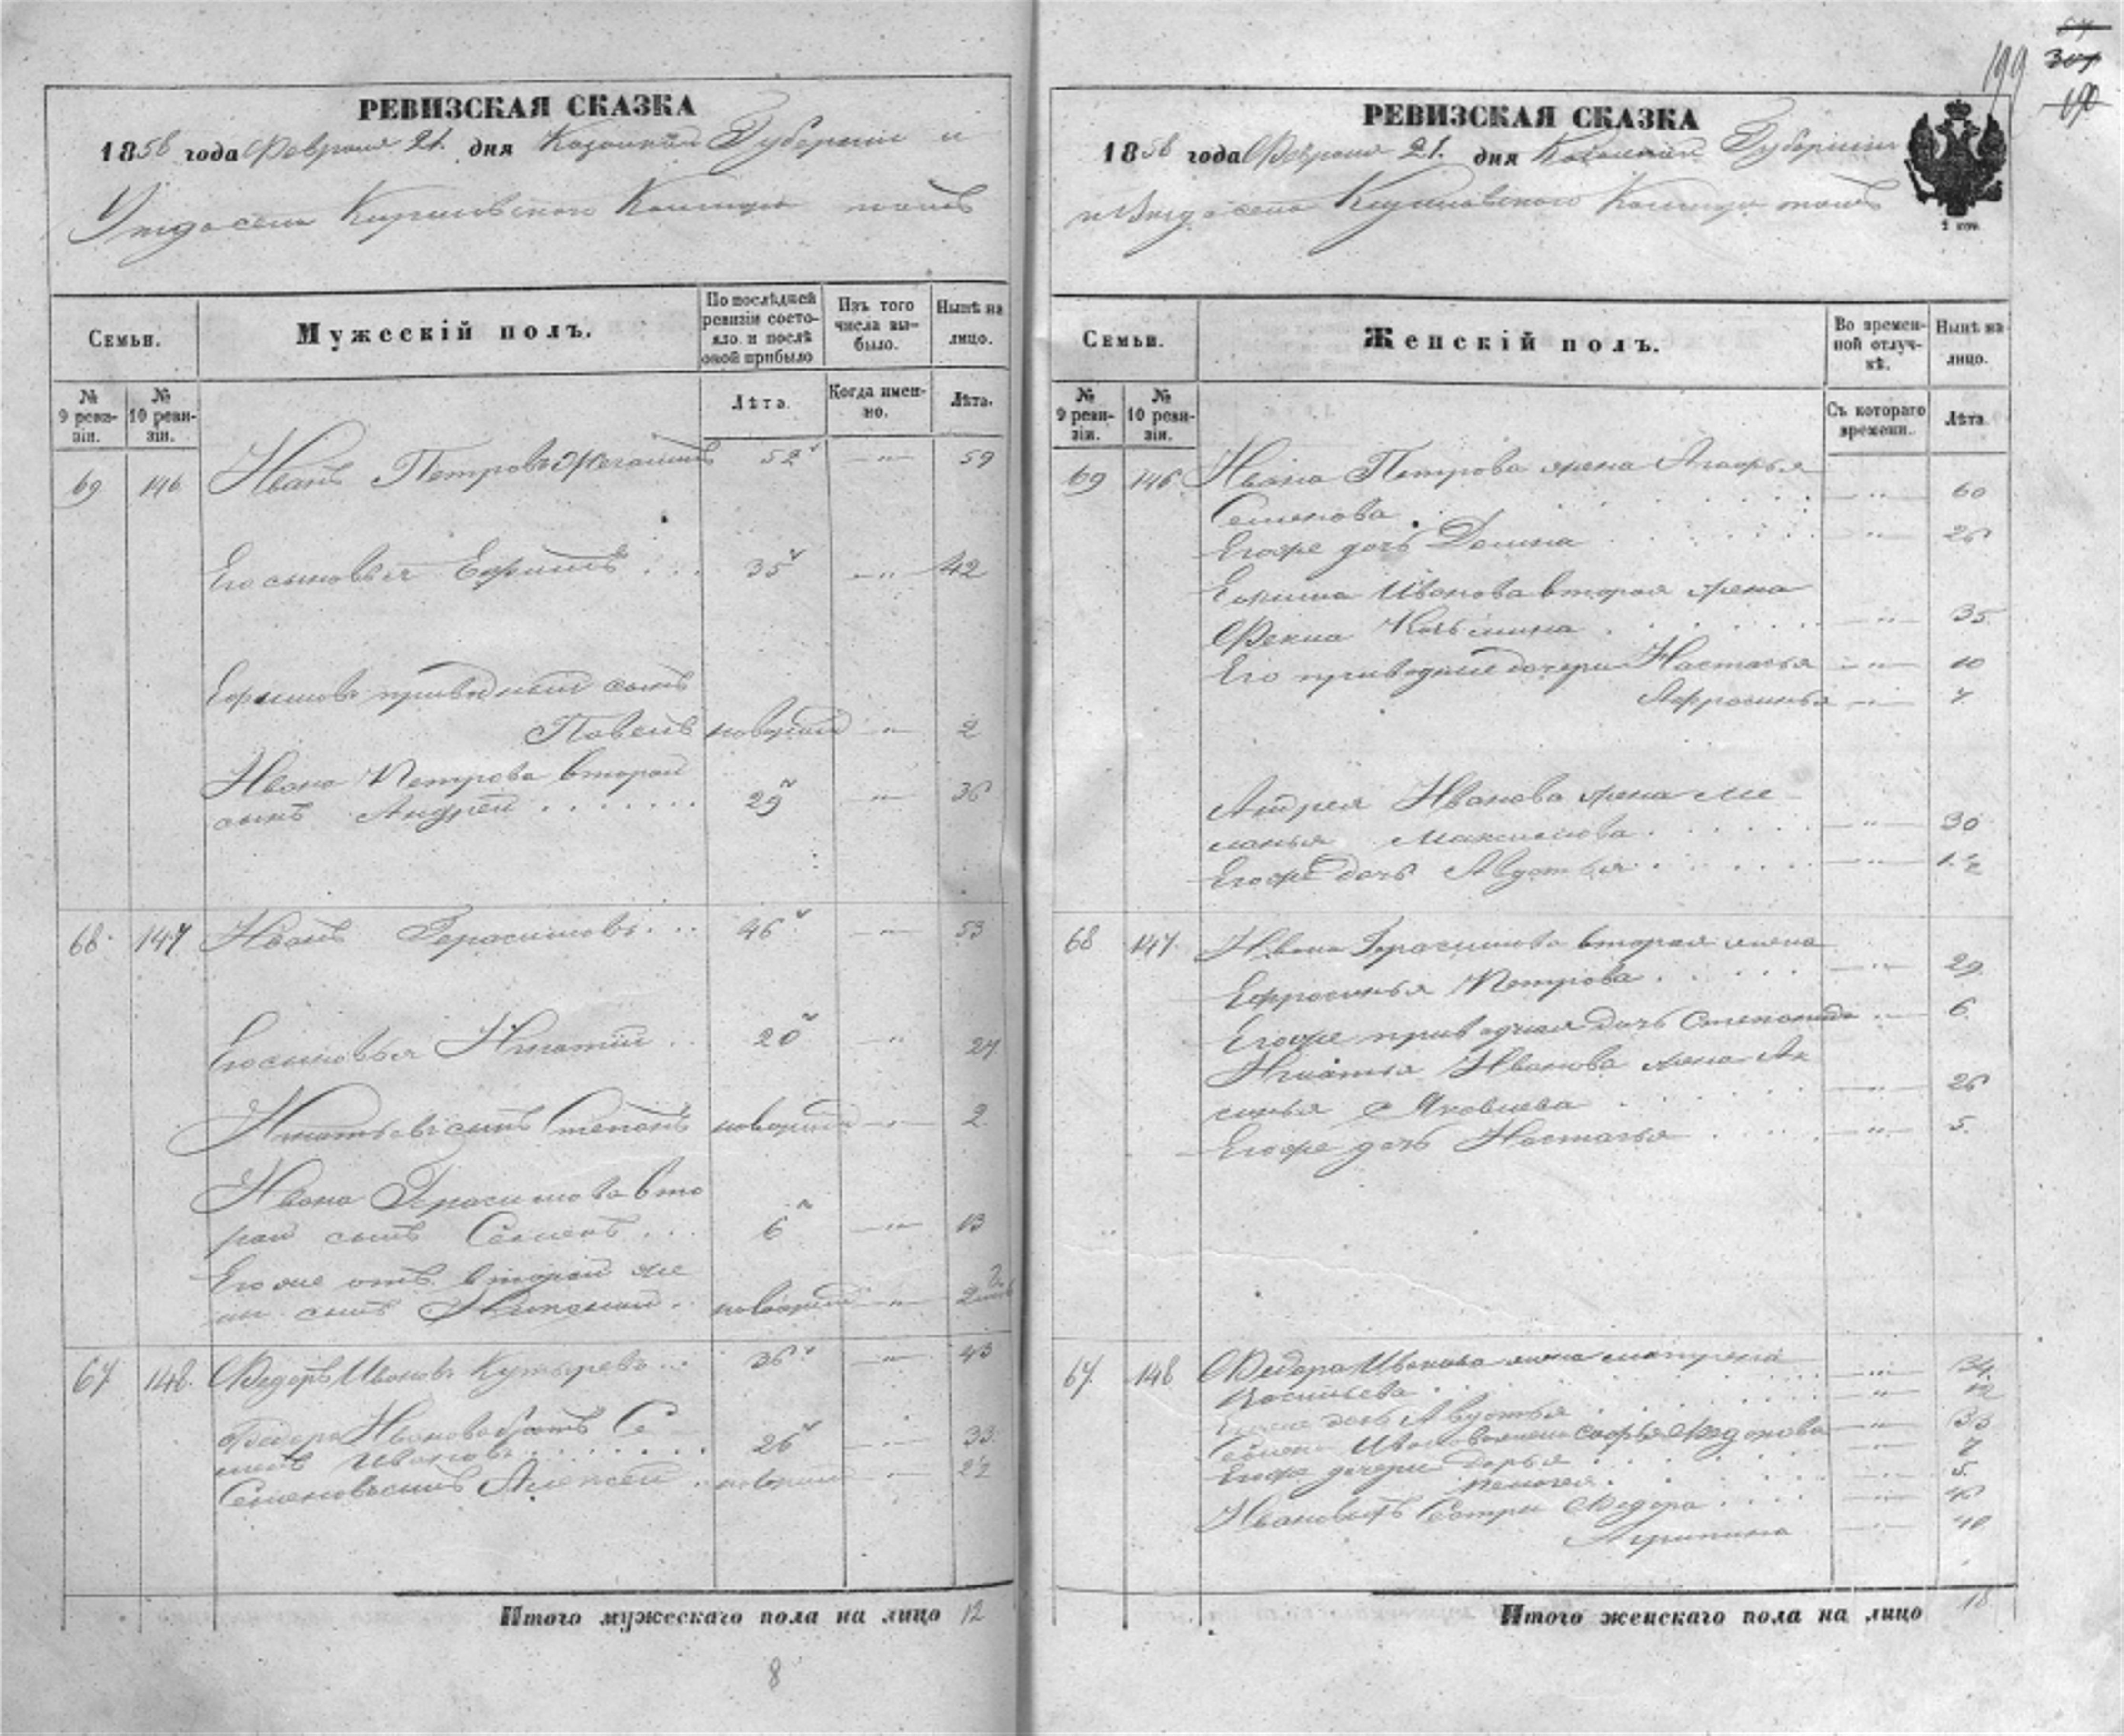 РЕВИЗСКАЯ СКАЗКА
1858 года Февраля 21. дня Казанской Губернии и
Уезда села Кириловского Кашкара тожъ
Семьи.
Мужескій полъ.
По послѣдней ревизіи состояло и послѣ оной прибыло
Изъ того числа выбыло.
Нынѣ на лицо.
№ 9 ревизіи.
№ 10 ревизіи.
Лѣта.
Когда именно.
Лѣта.
69 146 Иванъ Петровъ 52 — " — 59
Его сыновья Ефимъ . . . 35 — " — 42
Ефимовъ приводный сынъ
Павелъ новорожд — " — 2
Ивана Петрова второй
сынъ Андрей . . . . . . . 29 " 36
68. 147 Иванъ Герасимовъ . . . 46 — " — 53
Его сыновья Игнатий . . 20 — " 27
Игнатьевъ сынъ Степанъ новорожд — " — 2.
Ивана Герасимова вто
рой сынъ Семенъ . . . 6 — " — 13
Его же отъ второй же
ны сынъ новорожд — " — 2
67 148. Федоръ Ивановъ . . . 36 — " — 43
Федора Иванова братъ Се
менъ Ивановъ . . . . . . . 26 — " — 33.
Семеновъ сынъ Алексей . новорожд — " — 2½
Итого мужескаго пола на лицо 12
8
199
307
РЕВИЗСКАЯ СКАЗКА
1858 года Февраля 21. дня Казанской Губернии
и Уезда села Кириловского Кашкара тожъ
Семьи.
Женскій полъ.
Во временной отлучкѣ.
Нынѣ на лицо.
№ 9 ревизіи.
№ 10 ревизіи.
Съ котораго времени.
Лѣта
69 146. Ивана Петрова жена
Семенова . — " — 60
Его же дочь Домна . . . . . — " — 26
Ефима Иванова вторая жена
Фекла Козьмина . . . . . . — " — 35
Его приводные дочери Настасья — " — 10
Афросинья — " — 7.
Андрея Иванова жена Ме-
ланья Максимова . . . . . — " — 30
Его же дочь Авдотья . . . . . — " — 1½
68 147. Ивана Герасимова вторая жена
Ефросинья Петрова . . . . . — " — 29.
Его же приводная дочь Степанида — " — 6.
Игнатья Иванова жена Ак
синья Яковлева . . . . . — " — 26
Его же дочь Настасья . . . . — " — 5.
67. 148 Федора Иванова жена матрена
Васильева . . . . . . . — " — 34.
Его же дочь Авдотья . . . . . — " — 12
Семена Иванова жена Софья — " — 33
Его же дочери Дарья . . . . — " — 7
Пелагея . . . . . — " — 5.
Сестры Федора . . . . — " —
Агрипина — " — 40
Итого женскаго пола на лицо 18